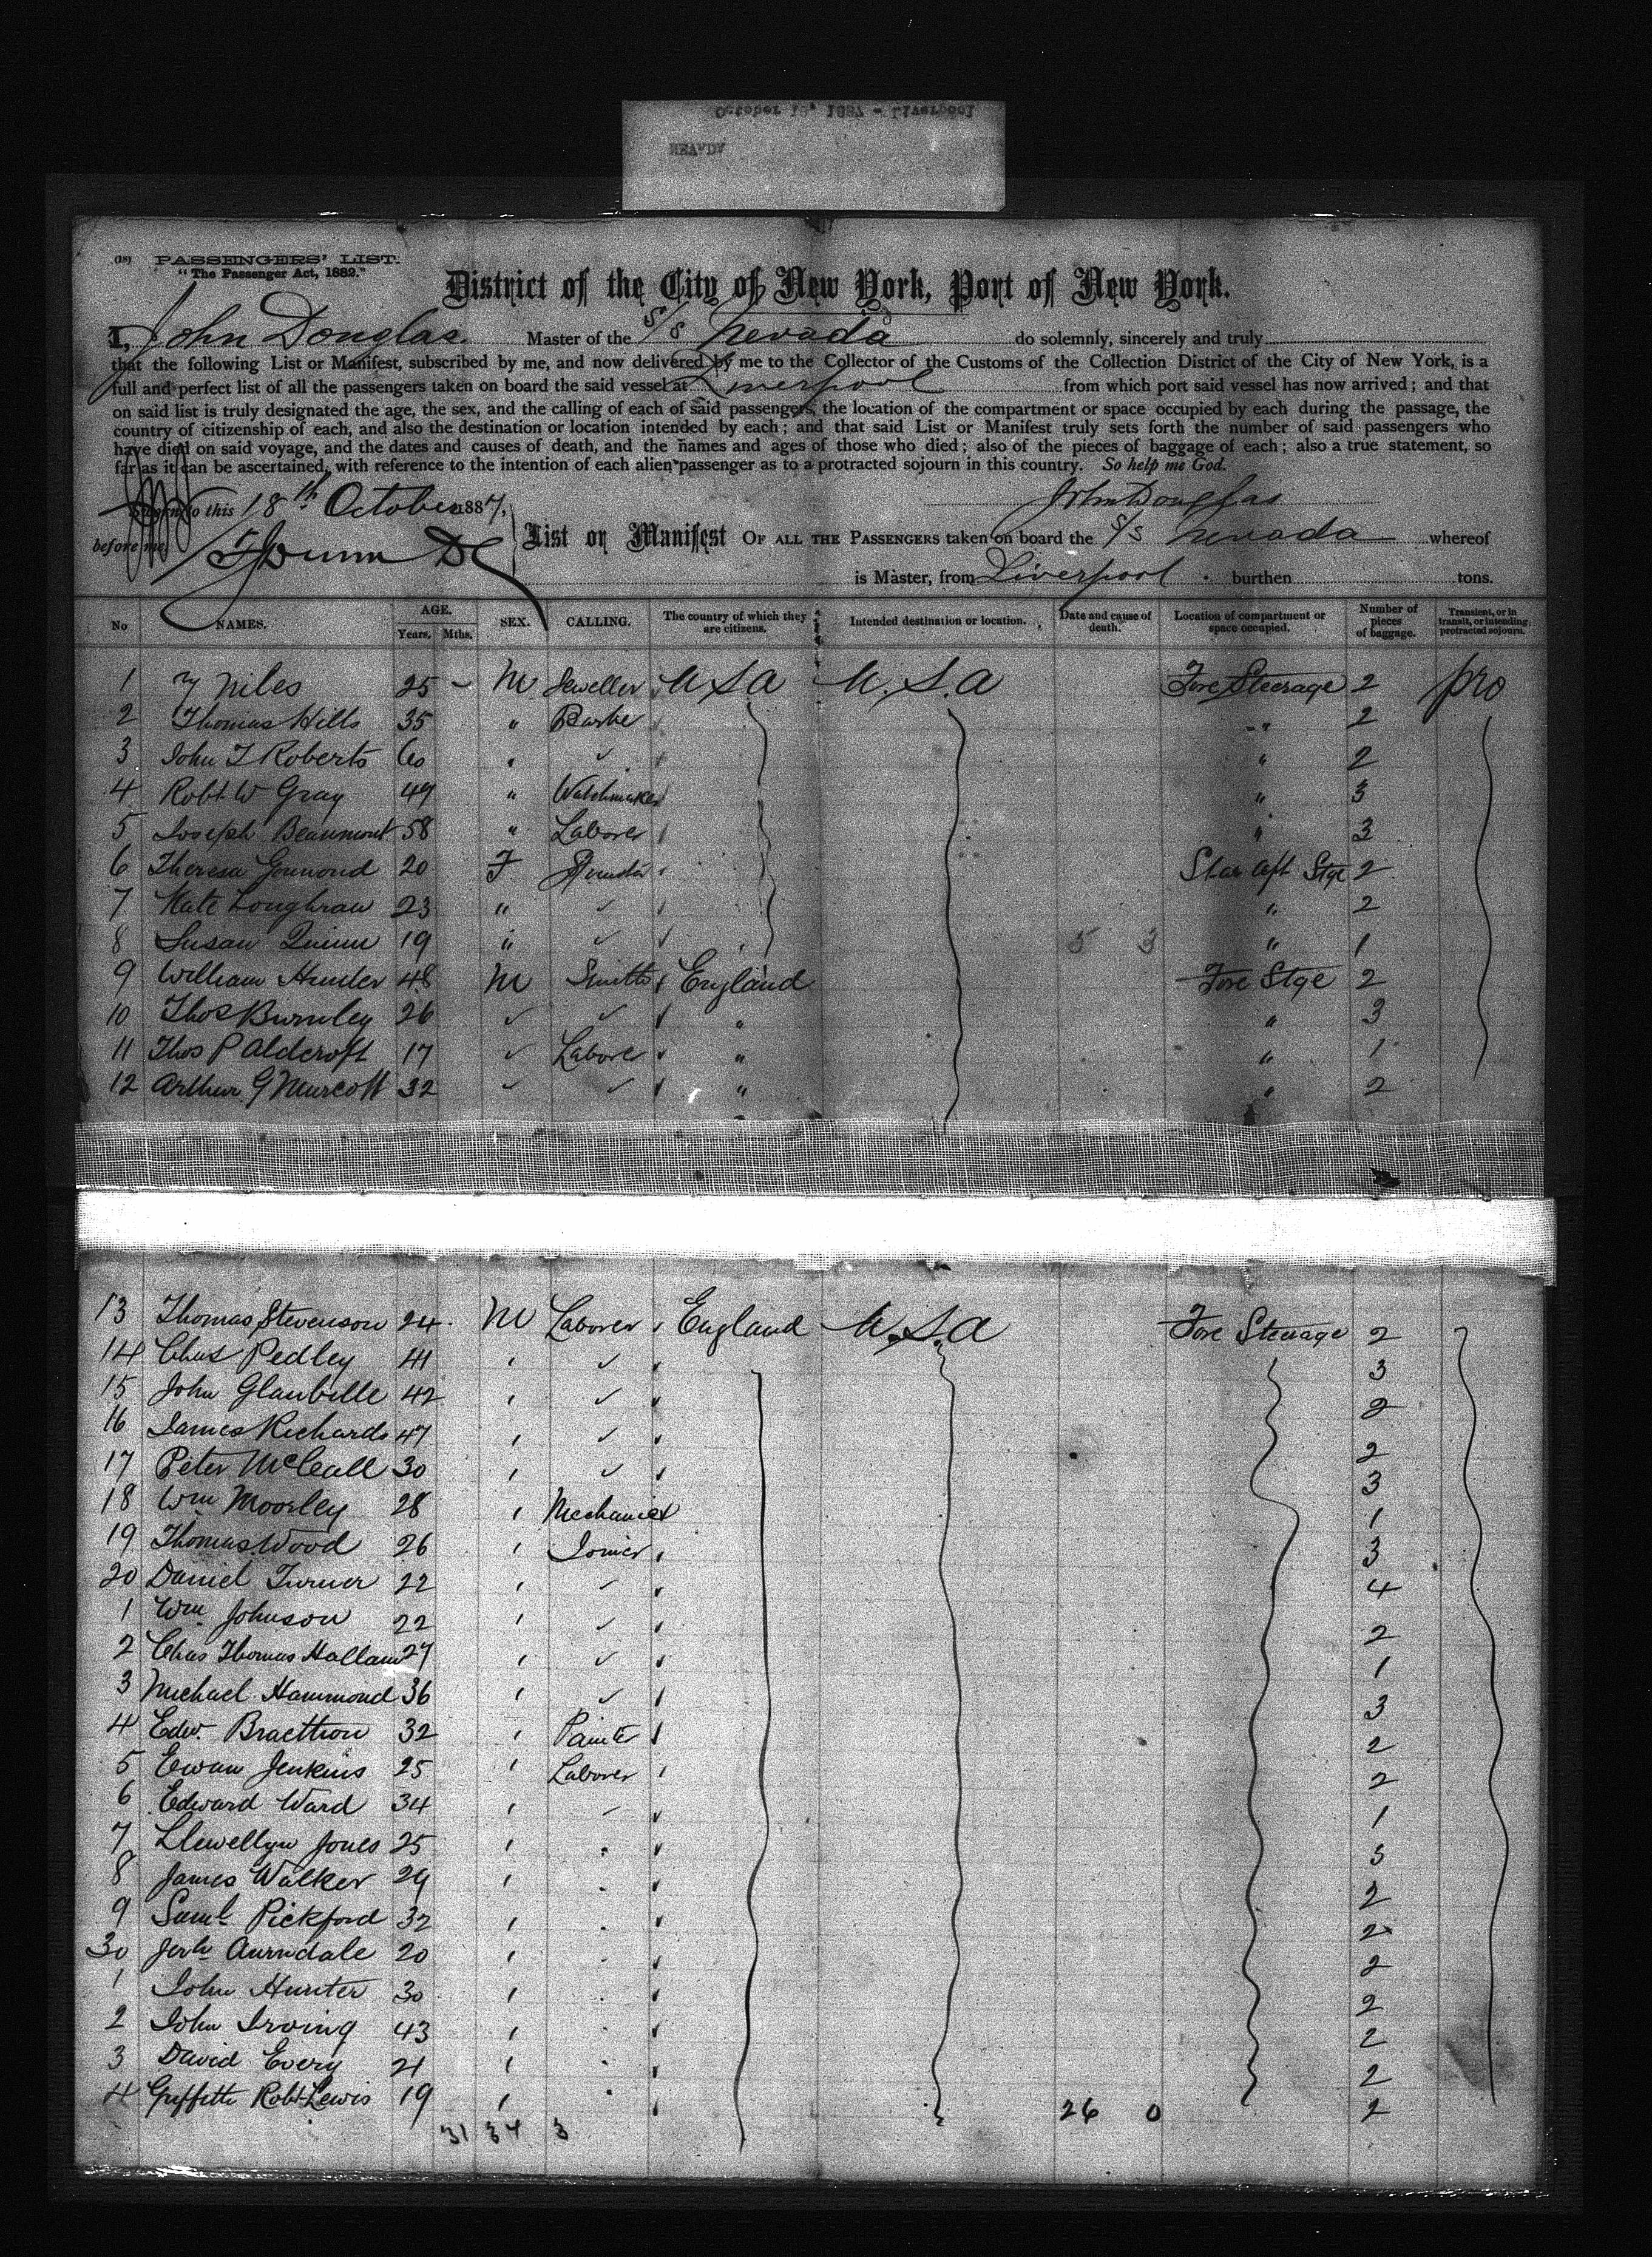 October 18, 1887 - Liverpool
NEAVDV
(18) PASSENGERS' LIST.
"The Passenger Act, 1882."
District of the City of New York, Port of New York.
I, John Douglas Master of the S/S Nevada do solemnly, sincerely and truly
that the following List or Manifest, subscribed by me, and now delivered by me to the Collector of the Customs of the Collection District of the City of New York, is a
full and perfect list of all the passengers taken on board the said vessel at Liverpool from which port said vessel has now arrived; and that
on said list is truly designated the age, the sex, and the calling of each of said passengers, the location of the compartment or space occupied by each during the passage, the
country of citizenship of each, and also the destination or location intended by each; and that said List or Manifest truly sets forth the number of said passengers who
have died on said voyage, and the dates and causes of death, and the names and ages of those who died; also of the pieces of baggage of each; also a true statement, so
far as it can be ascertained, with reference to the intention of each alien passenger as to a protracted sojourn in this country. So help me God.
Sworn to this 18th October 1887, John Douglas
before me List or Manifest OF ALL THE PASSENGERS taken on board the S/S Nevada whereof
is Master, from Liverpool burthen tons.
No NAMES. AGE. Years. Mths. SEX. CALLING. The country of which they are citizens. Intended destination or location. Date and cause of death. Location of compartment or space occupied. Number of pieces of baggage. Transient, or in transit, or intending protracted sojourn.
1 Niles 25 - M Jeweller USA U.S.A Fore Steerage 2 pro
2 Thomas Hills 35 " " 2
3 John T Roberts 60 " ✓ " 2
4 Robt W Gray 49 " Watchmaker " 3
5 Joseph Beaumont 58 " Laborer " 3
6 Theresa 20 F Star Aft Stge 2
7 Kate Loughraw 23 " ✓ " 2
8 Susan Quinn 19 " ✓ 5 3 " 1
9 William Hunter 48 M Smith England Fore Stge 2
10 Thos Burnley 26 ✓ ✓ " " 3
11 Thos P Aldcroft 17 ✓ Labore " " 1
12 Arthur G Murcott 32 ✓ ✓ " " 2
13 Thomas Stevenson 24 M Laborer England U.S.A Fore Steerage 2
14 Chas Pedley 41 " ✓ 3
15 John Glanbille 42 " ✓ 2
16 James Richards 47 " ✓ 2
17 Peter McCall 30 " ✓ 3
18 Wm Moorley 28 " Mechanic 1
19 Thomas Wood 26 " Joiner 3
20 Daniel Turner 22 " ✓ 4
1 Wm Johnson 22 " ✓ 2
2 Chas Thomas Hallam 27 " ✓ 1
3 Michael Hammond 36 " ✓ 3
4 Edw. 32 " Painte 2
5 Ewan Jenkins 25 " Laborer 2
6 Edward Ward 34 " 1
7 Llewellyn Jones 25 " 3
8 James Walker 29 " 2
9 Saml Pickford 32 " 2
30 20 " 2
1 John Hunter 30 " 2
2 John Irving 43 " 2
3 David Every 21 " 2
4 Griffith Robt Lewis 19 " 26 0 2
31 34 3